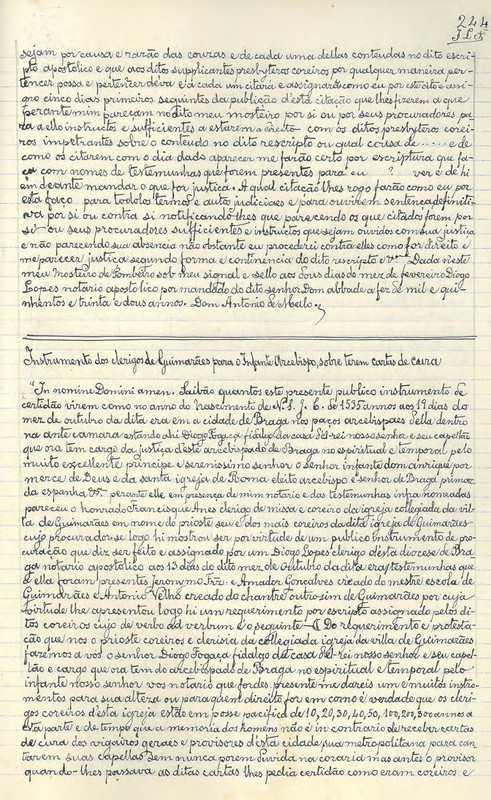 244
sejam por causa e razão das couzas e de cada uma dellas conteudas no dito escri-
pto apostolico e que aos ditos supplicantes presbyteros coreiros por qualquer maneira per-
tencer possa e pertencer deva e a cada um citará e assignará como eu por este cito e assi-
gno cinco dias primeiros seguintes da publicão d'esta citação que lhes fizerem a que
perante mim pareçam no dito meu mosteiro por si ou por seus procuradores pa-
ra a ello instructo e sufficientes a estarem a direito com os ditos presbyteros corei-
ros impetrantes sobre o conteudo no dito rescripto ou qual cousa de ..... e de
como os citarem com o dia dado aparecer me farão certo por escriptura que fa-
ça com nomes de testemunhas que forem presentes para eu ? ver e de hi
em deante mandar o que for justiça. A qual citação lhes rogo farão como eu por
esta faço para todolos termos e autos judiciaes e para ouvirem sentença definiti-
va por si ou contra si notificando-lhes que parecendo os que citados forem por
si ou seus procuradores sufficientes e instructos que sejam ouvidos com sua justiça
e não parecendo sua absencia não obstante eu procederei contra elles como for direito e
me parecer justiça segundo forma e continencia do dito rescripto e Dada n'este
meu Mosteiro de Pombeiro sob meu signal e sello aos dous dias do mez de fevereiro Diogo
Lopes notario apostolico por mandado do dito senhor Dom abbade a fez de mil e qui-
nhentos e trinta e dous annos. Dom Antonio de Mello.
Instrumento dos clerigos de Guimarães para o Infante Arcebispo, sobre terem cartas de cura
"In nomine Domini amen. Saibão quantos este presente publico instrumento de
certidão virem como no anno do nascimento de N. S. J. C. de 1535 annos aos 19 dias do
mez de outubro da dita era em a cidade de Braga nos paços arcebispaes della dentro
na ante camara estando ahi Diogo Fogaça fidalgo da casa d'el-rei nosso senhor e seu capellão
que ora tem cargo da justiça d'este arcebispado de Braga no espiritual e temporal pelo
muito excellente principe e serenissimo senhor o senhor infante dom anrique por
merce de Deus e da santa igreja de Roma eleito arcebispo e senhor de Braga primaz
da espanha perante elle em presença de mim notario e das testemunhas infra nomeadas
pareceu o honrado Francisque Anes clerigo de missa e coreiro da igreja collegiada da vil-
la de Guimarães em nome do prioste seu e dos mais coreiros da dita igreja de Guimarães
cujo procurador se logo hi mostrou ser por virtude de um publico instrumento de pro-
curação que diz ser feito e assignado por um Diogo Lopes clerigo desta diocese de Bra-
ga notario apostolico aos 13 dias do dito mez de Outubro da dita era, testemunhas que
a ella foram presentes Jeronymo Frz e Amador Gonçalves creado do mestre escola de
Guimarães e Antonio Velho creado do chantre outro sim de Guimarães por cuja
virtude lhe apresentou logo hi um requerimento por escripto assignado pelos di-
tos coreiros cujo de verbo ad verbum é o seguinte — Do requerimento e protesta-
ção que nos o prioste coreiros e clerisia da collegiada igreja da villa de Guimarães
fazemos a vos o senhor Diogo Fogaça fidalgo da casa d'el-rei nosso senhor e seu capel-
lão e cargo que ora tem do arcebispado de Braga no espiritual e temporal pelo
infante nosso senhor vos notario que fordes presente me dareis um e muitos instro-
mentos para sua alteza ou para quem direito for em como é verdade que os cleri-
gos coreiros d'esta igreja estão em posse pacifica de 10, 20, 30, 40, 50, 100, 200, 300 annos a
esta parte e de tempo que a memoria dos homens não é in contrario de receber cartas
de cura dos vigairos geraes e provisores desta cidade sua metropolitana para can-
tarem suas capellas sem nunca porem duvida na coraria mas antes o provisor
quando lhes passava as ditas cartas lhes pedia certidão como eram coreiros e